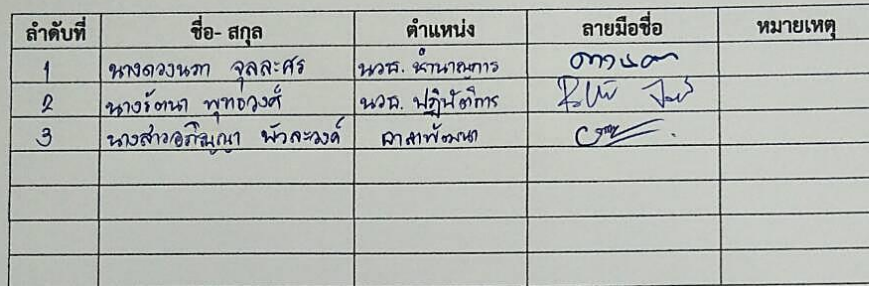 ลำดับที่ ชื่อ- สกุล ตำแหน่ง ลายมือชื่อ หมายเหตุ
1 นางดวงนภา จุลละศร นวช. ชำนาญการ
2 นางรัตนา พุทธวงศ์ นวช. ปฏิบัติการ
3 นางสาวอภิญญา พัวละวงค์ อาสาพัฒนา